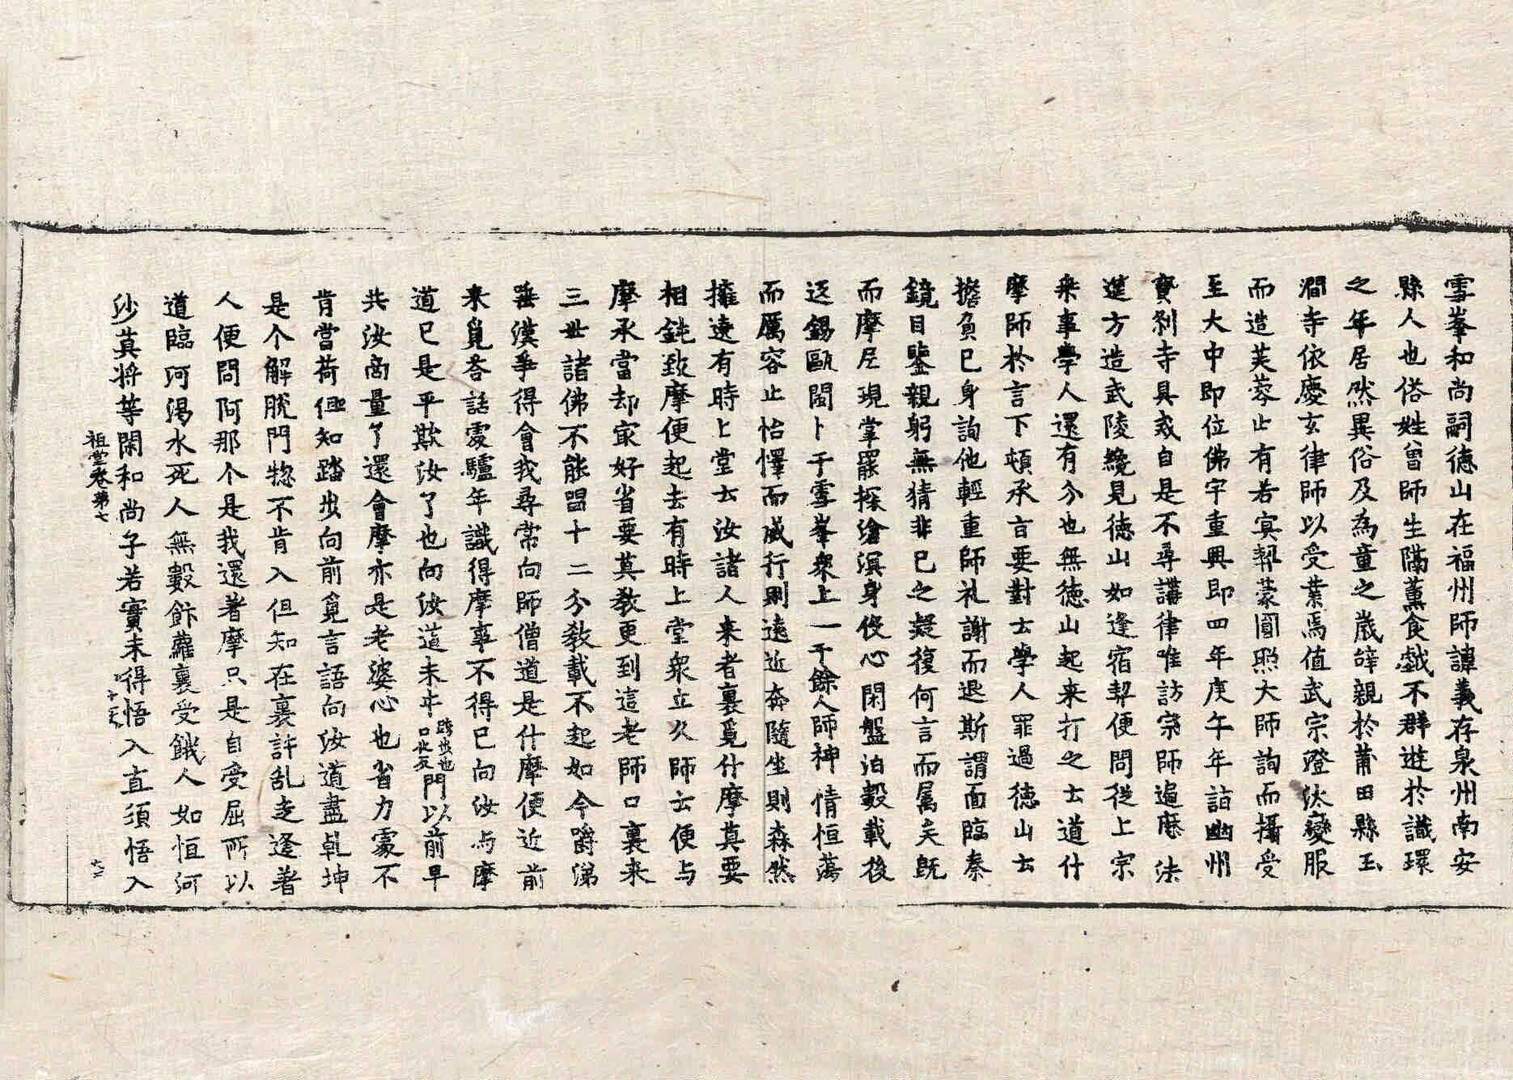 雪峯和尚嗣德山在福州師諱義存泉州南安
縣人也俗姓曾師生隔薰食戲不群遊於識環
之年居然異俗及為童之歲辝親於莆田縣玉
澗寺依慶玄律師以受業焉值武宗澄汰變服
而造芙蓉止有若冥契蒙圓照大師詢而攝受
至大中即位佛宇重興即四年庚午年詣幽州
寶剎寺具戒自是不尋講律唯訪宗師遍歷法
莚方造武陵纔見德山如逢宿契便問從上宗
乗事學人還有分也無德山起來打之士道什
摩師於言下頓承言要對士學人罪過德山士
擔負己身詢他輕重師礼謝而退斯謂面臨秦
鏡目鑒親躬無猜非己之疑復何言而属矣既
而摩尼現掌罷探滄溟身俊心閑盤泊數載後
返錫甌閩卜于雪峯衆上一千餘人師神情恒蕩
而厲容止怡懌而威行則遠近奔隨坐則森然
擁遶有時上堂云汝諸人來者裏覓什摩莫要
相鈍致摩便起去有時上堂衆立久師云便与
摩承當却冣好省要莫教更到這老師口裏來
三世諸佛不能唱十二分教載不起如今嚼涕
唾漢爭得會我尋常向師僧道是什摩便近前
来覓荅話處驢年識得摩事不得已向汝与摩
道已是平欺汝了也向汝道未𨁝跨歩也口化反門以前早
共汝商量了還會摩亦是老婆心也省力處不
肯當荷但知踏步向前覓言語向汝道盡乹坤
是个解脫門惣不肯入但知在裏許乱走逢著
人便問阿那个是我還著摩只是自受屈所以
道臨河渴水死人無數飰蘿裏受餓人如恒河
沙莫将等閑和尚子若實未得悟入直須悟入
祖堂卷第七